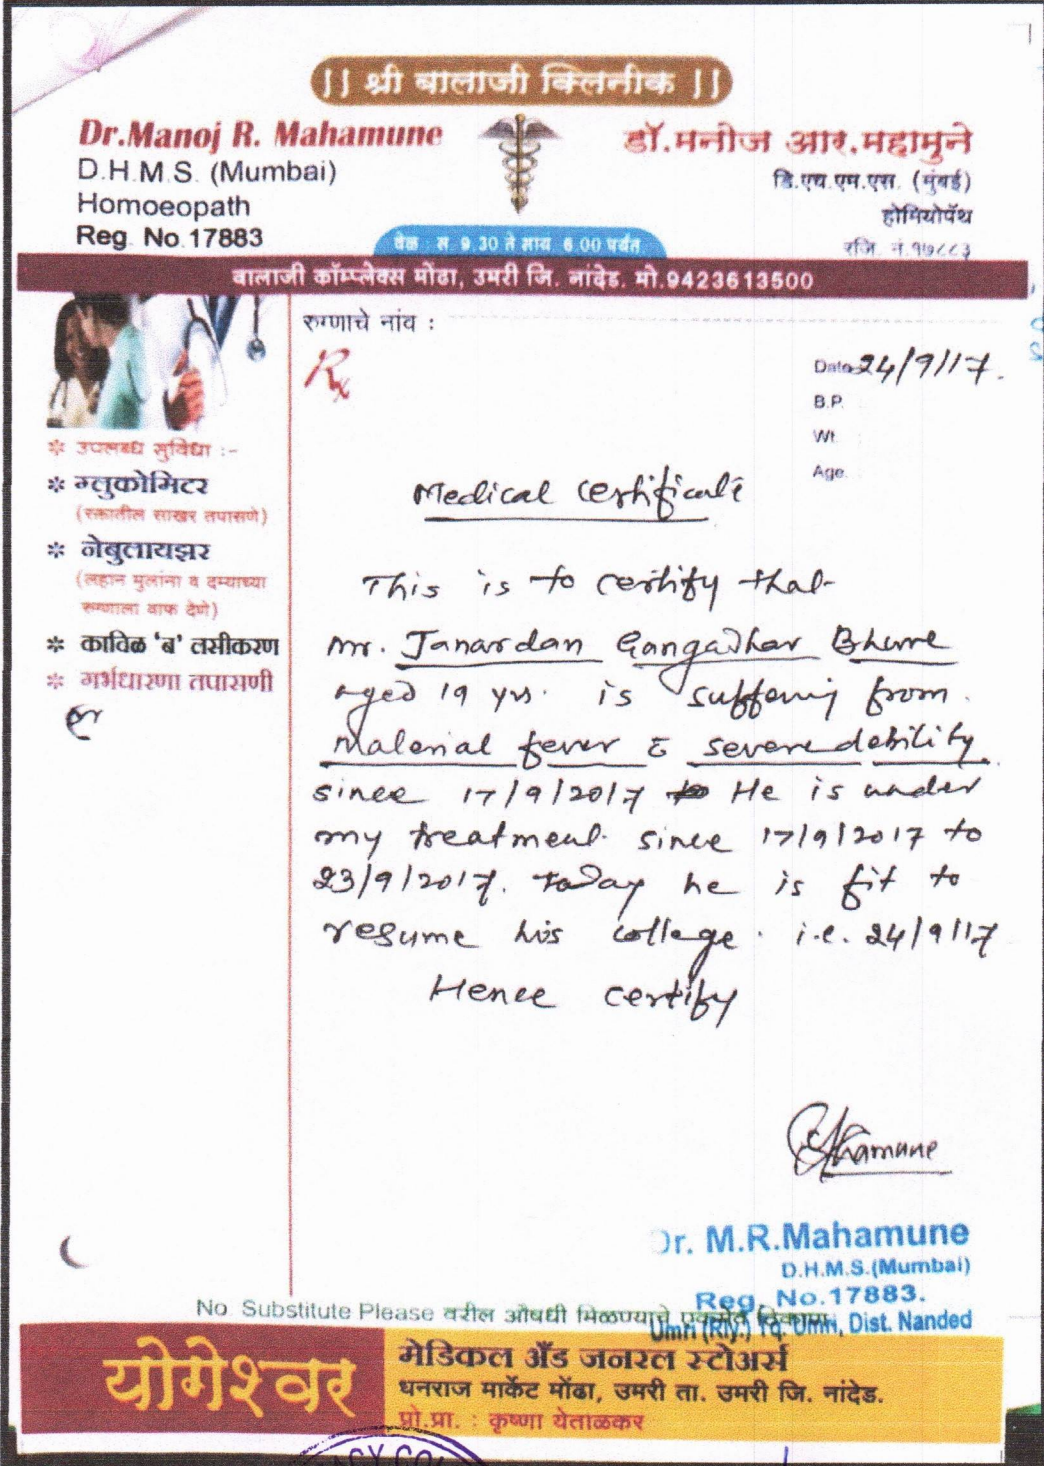 || श्री बालाजी क्लिनीक ||
Dr.Manoj R. Mahamune
D.H.M.S. (Mumbai)
Homoeopath
Reg. No.17883
डॉ.मनोज आर.महामुने
डि.एच.एम.एस. (मुंबई)
होमियोपॅथ
रजि. नं.१७८८३
वेळ : स. 9.30 ते सायं. 6.00 पर्यंत
बालाजी कॉम्प्लेक्स मोंढा, उमरी जि. नांदेड. मो.9423613500
रुग्णाचे नांव :
Rx
Date 24/9/17.
B.P.
Wt.
Age.
* उपलब्ध सुविधा :-
* ग्लुकोमिटर
(रक्तातील साखर तपासणे)
* नेबुलायझर
(लहान मुलांना व दम्याच्या
रुग्णाला वाफ देणे)
* काविळ 'ब' लसीकरण
* गर्भधारणा तपासणी
Medical Certificate
This is to certify that
Mr. Janardan Gangadhar Bhure
aged 19 yrs. is suffering from
Malerial fever & severe debility
since 17/9/2017 He is under
my treatment since 17/9/2017 to
23/9/2017. Today he is fit to
resume his college. i.e. 24/9/17
Hence certify
Dr. M.R.Mahamune
D.H.M.S.(Mumbai)
Reg. No.17883.
Umri (Rly.) Tq. Umri, Dist. Nanded
No Substitute Please वरील औषधी मिळण्याचे एकमेव ठिकाण
योगेश्वर
मेडिकल अँड जनरल स्टोअर्स
धनराज मार्केट मोंढा, उमरी ता. उमरी जि. नांदेड.
प्रो.प्रा. : कृष्णा येताळकर